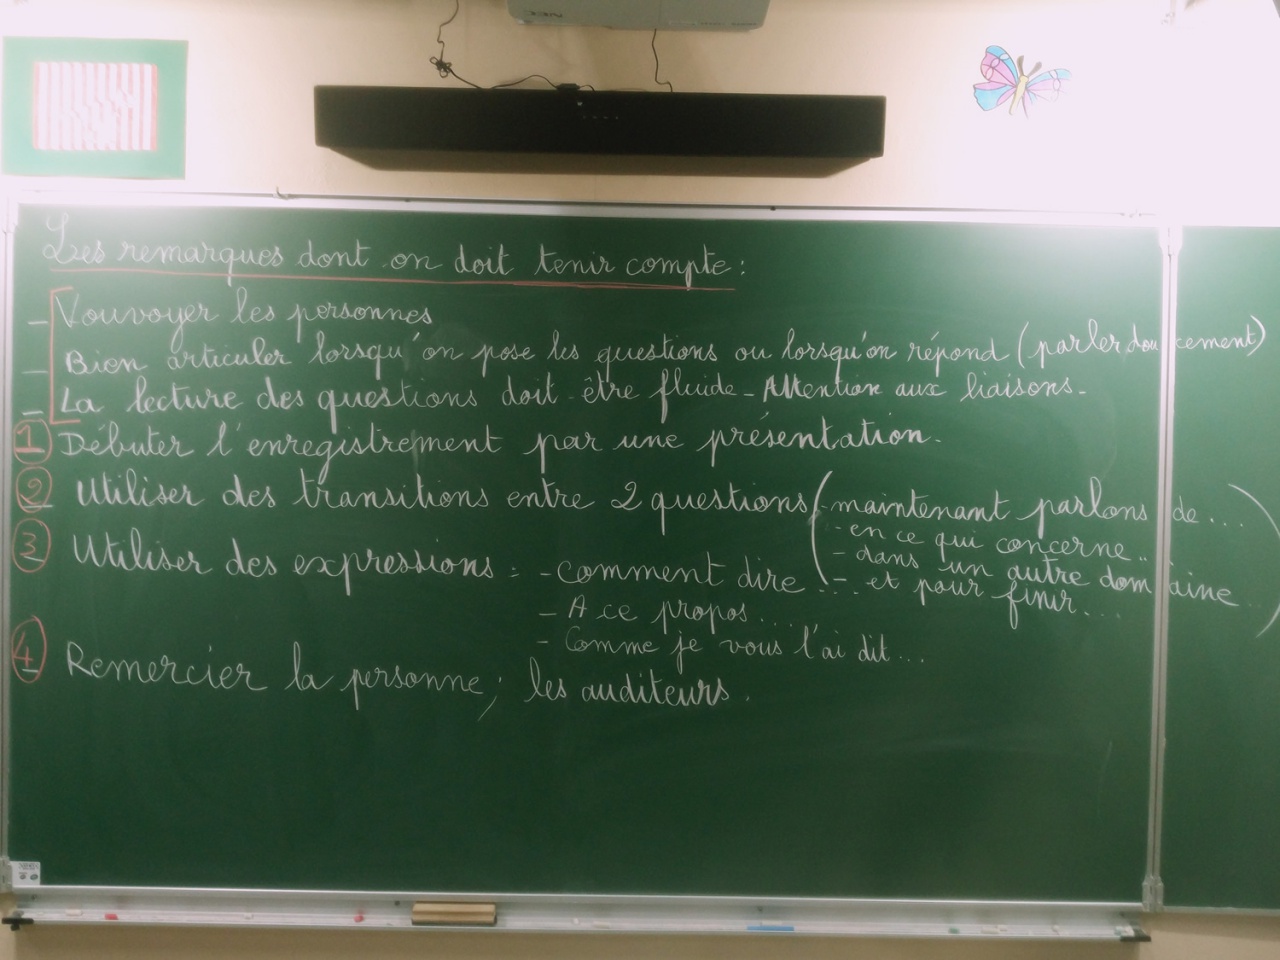 NEC
Les remarques dont on doit tenir compte :
- Vouvoyer les personnes
- Bien articuler lorsqu'on pose les questions ou lorsqu'on répond (parler doucement)
- La lecture des questions doit être fluide - Attention aux liaisons.
1 Débuter l'enregistrement par une présentation.
2 Utiliser des transitions entre 2 questions (- maintenant parlons de ...
- en ce qui concerne ..
- dans un autre domaine ..
- et pour finir ... )
3 Utiliser des expressions : - comment dire ...
- A ce propos ....
- Comme je vous l'ai dit ...
4 Remercier la personne ; les auditeurs.